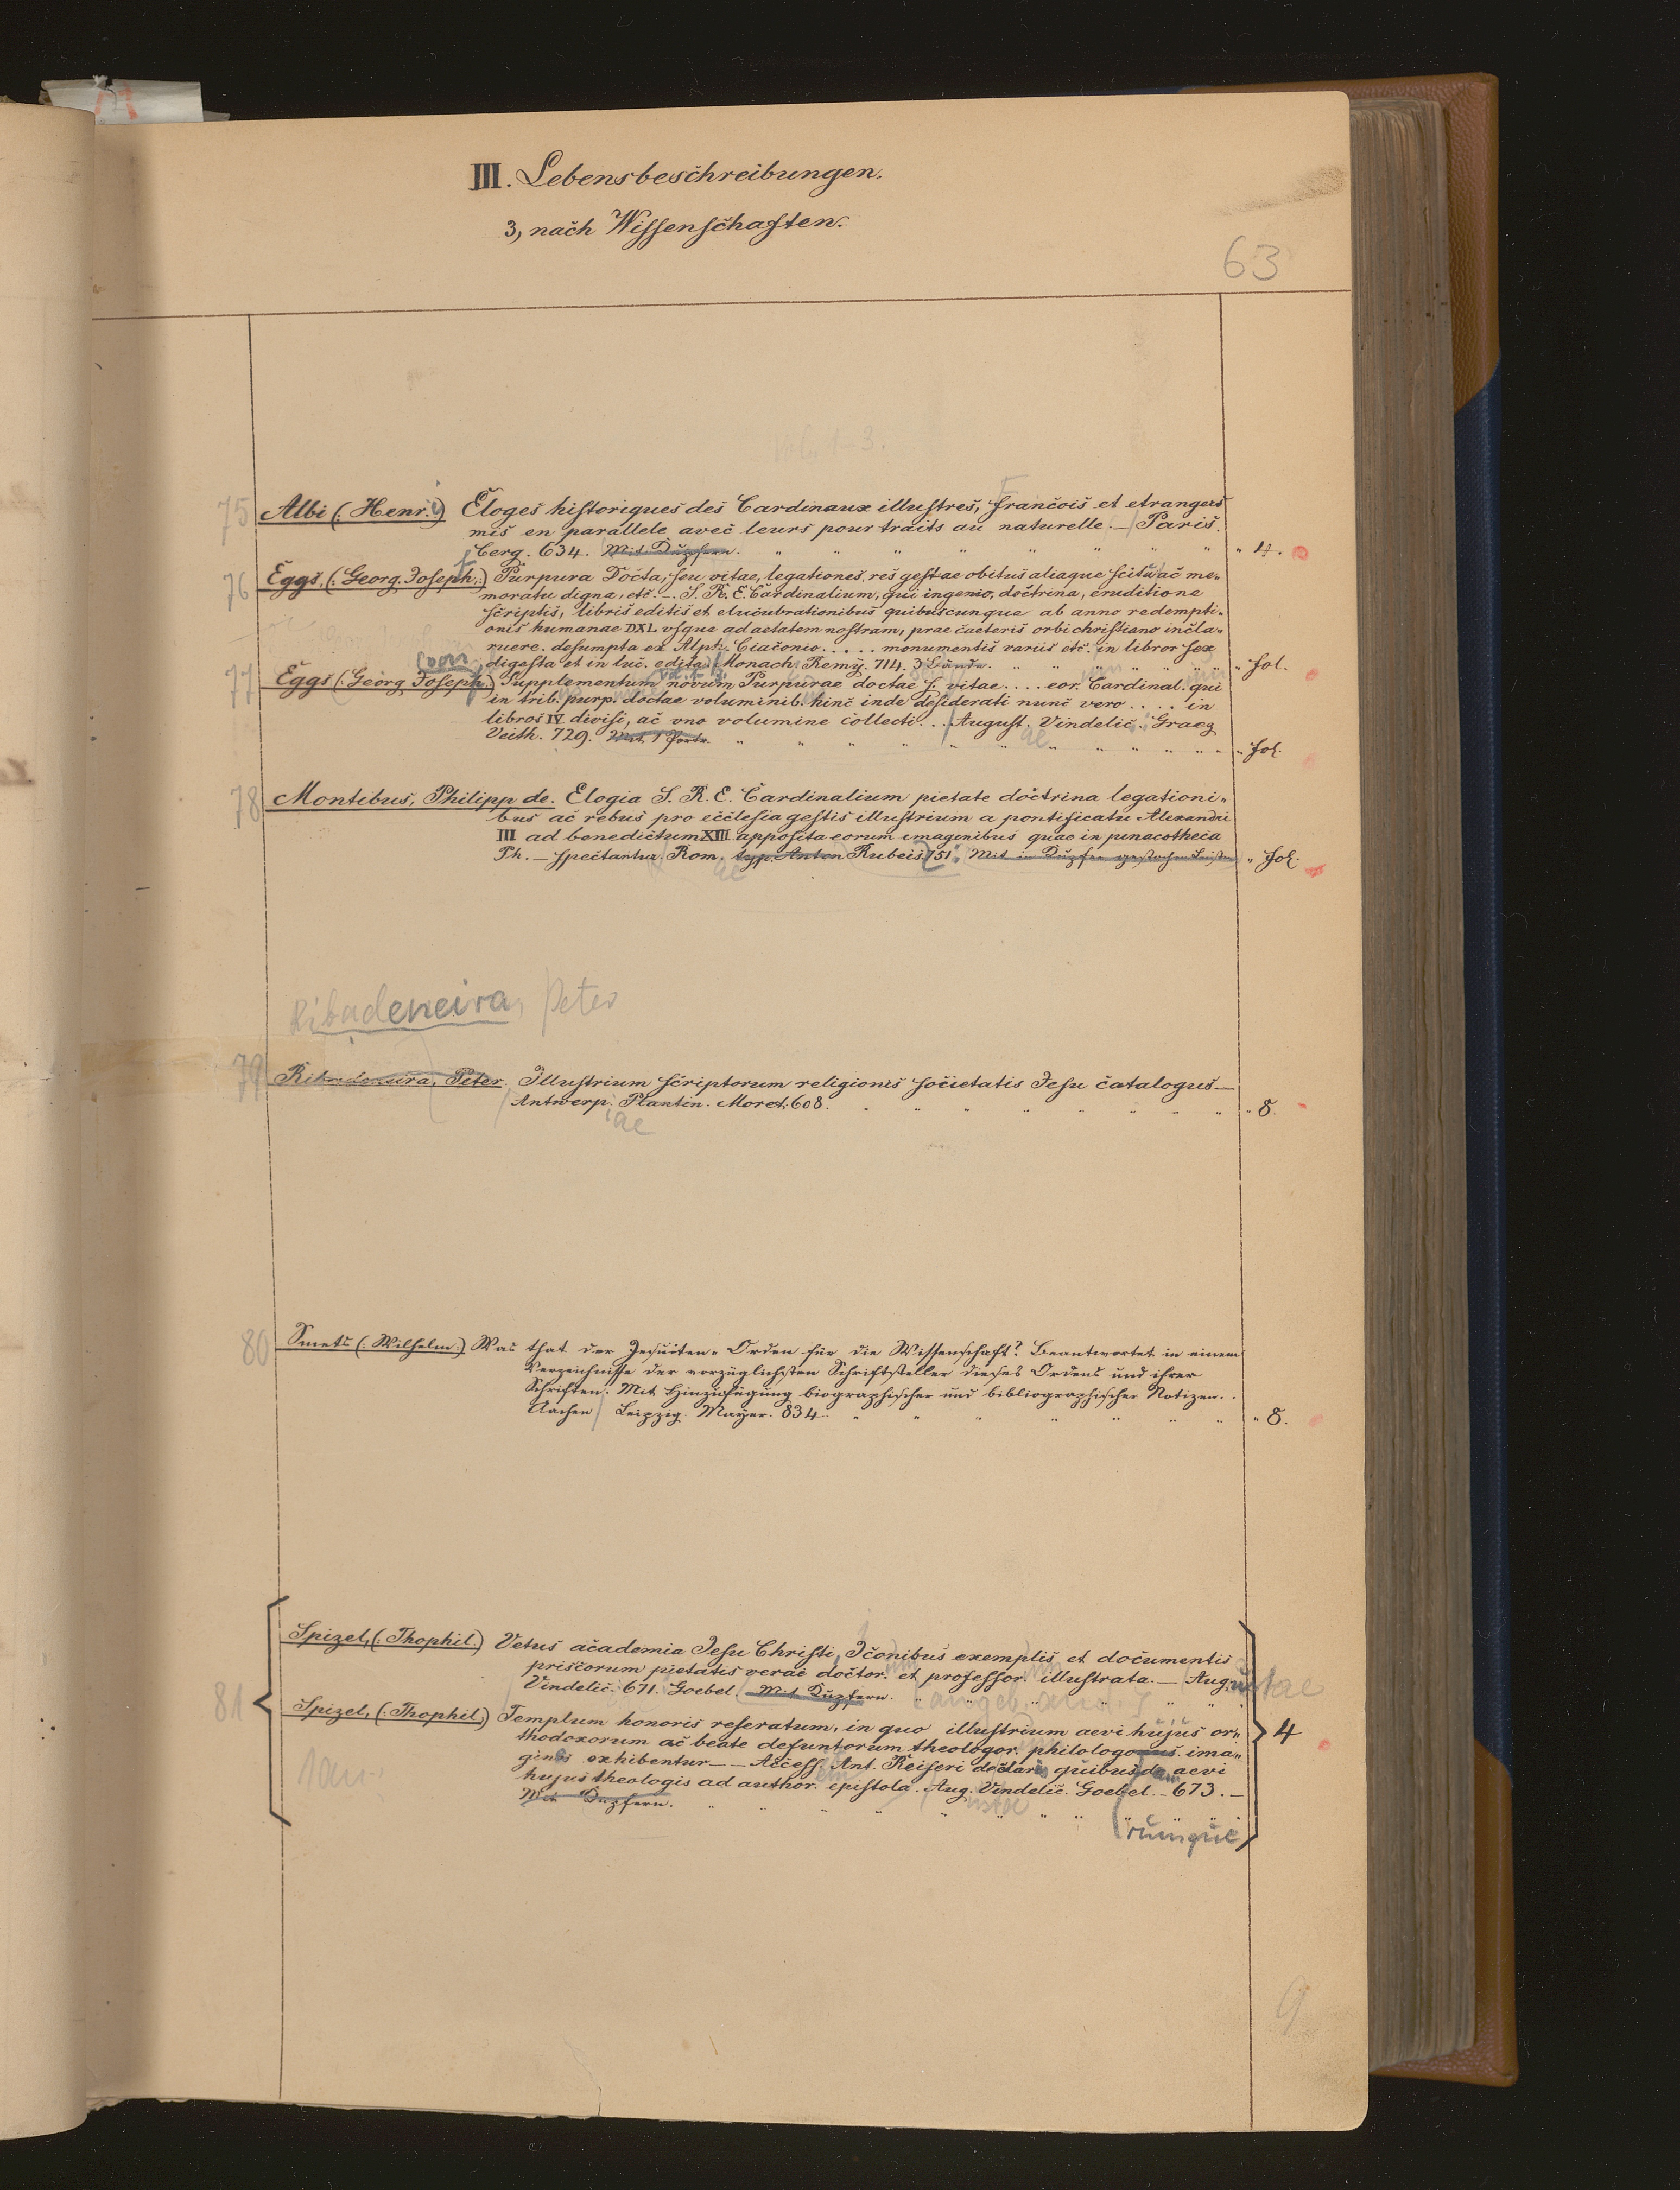 III. Lebensbeschreibungen.
3, nach Wissenschaften.
63
Vol. 1-3.
75 Albi (: Henr. :) Éloges historiques des Cardinaux illustres, françois et etrangers
mis en parallele avec leurs pourtraits au naturelle. — Paris.
Cerg. 634. Mit Kupfern. " 4.
76 Eggs, (: Georg. Joseph, :) Purpura Docta, seu vitae, legationes, res gestae obitus aliaque scitu ac me-
moratu digna, etc. — S. R. E. Cardinalium, qui ingenio, doctrina, eruditione
scriptis, libris editis et elucubrationibus quibuscunque ab anno redempti-
onis humanae DXL vsque ad aetatem nostram, prae caeteris orbi christiano incla-
ruere. desumpta ex Alph. Ciaconio . . . . . monumentis variis etc. in libros sex
digesta et in luc. edita. Monach. Remÿ. 714. 3 Bände. " fol.
77 Eggs (: Georg Joseph. :) Supplementum novum Purpurae doctae s. vitae . . . . eor. Cardinal. qui
in trib. purp. doctae voluminib. hinc inde desiderati nunc vero . . . . in
libros IV divisi, ac vno volumine collecti . . . August. Vindelic. Graez
Veith. 729. Mit 1 Portr. " fol.
78 Montibus, Philipp de. Elogia S. R. E. Cardinalium pietate doctrina legationi-
bus ac rebus pro ecclesia gestis illustrium a pontificatu Alexandri
III ad benedictum XIII apposita eorum imaginibus quae in pinacotheca
Ph. — spectantur. Rom. typ. Anton Rubeis 751. Mit in Kupfer gestochen Leisten " fol.
ae
Ribadeneira, Peter
79 Ribadeneira, Peter. Illustrium scriptorum religionis societatis Jesu catalogus —
Antwerp. Plantin. Moret. 608. " 8.
iae
80 Smets (: Wilhelm :) Was that der Jesuiten-Orden für die Wissenschaft? Beantwortet in einem
Verzeichnisse der vorzüglichsten Schriftsteller dieses Ordens und ihrer
Schriften. Mit Hinzufügung biographischer und bibliographischer Notizen. .
Aachen / Leipzig. Mayer. 834. " 8.
Spizel, (: Thophil. :) Vetus academia Jesu Christi, Iconibus exemplis et documentis
priscorum pietatis verae doctor. et professor. illustrata. — Augustae
Vindelic. 671. Goebel. Mit Kupfern.
81 Spizel, (: Thophil. :) Templum honoris reseratum, in quo illustrium aevi hujus or-
4
thodoxorum ac beate defuntorum theologor. philologorus. ima-
gines exhibentur — — Access. Ant. Reiseri de claris quibusdam aevi
hujus theologis ad author. epistola. Aug. Vindelic. Goebel. — 673. —
ustae
Mit Kupfern.
rumque
9